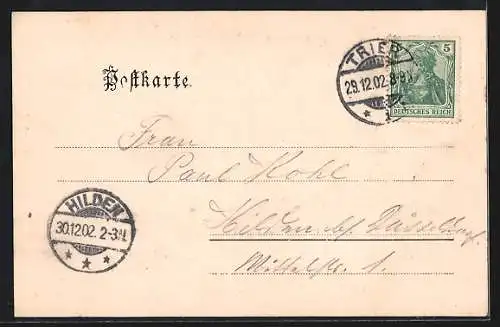 Postkarte.
TRIER
29.12.02. 8-9V
5
DEUTSCHES REICH
Frau
Paul Kohl
Hilden b. Düsseldorf.
Mittelstr. 1.
HILDEN
30.12.02. 2-3N.